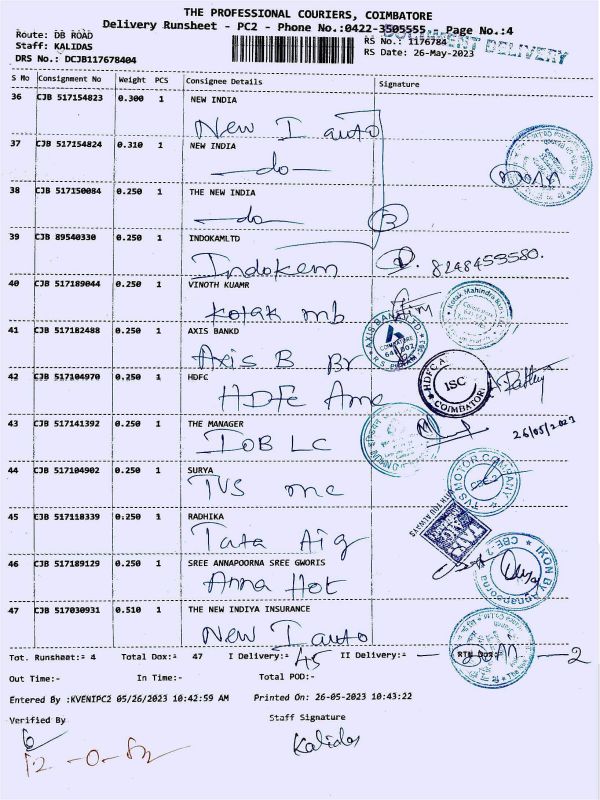 THE PROFESSIONAL COURIERS, COIMBATORE
Delivery Runsheet - PC2 - Phone No.:0422-3505555 Page No.:4
DOCUMENT DELIVERY
Route: DB ROAD
RS No.: 1176784
Staff: KALIDAS
RS Date: 26-May-2023
DRS No.: DCJB117678404
S No Consignment No Weight PCS Consignee Details Signature
36 CJB 517154823 0.300 1 NEW INDIA
New I auto
37 CJB 517154824 0.310 1 NEW INDIA
-do-
38 CJB 517150084 0.250 1 THE NEW INDIA
-do-
39 CJB 89540330 0.250 1 INDOKAMLTD
Indokem
40 CJB 517189044 0.250 1 VINOTH KUAMR
Kotak mb
Kotak Mahindra
41 CJB 517182488 0.250 1 AXIS BANKD
Axis B Br
AXIS BANK LTD
COIMBATORE
42 CJB 517104970 0.250 1 HDFC
HDFC
ISC
COIMBATORE
43 CJB 517141392 0.250 1 THE MANAGER
IOB LC
26/05/2023
44 CJB 517104902 0.250 1 SURYA
TVS mc
TVS MOTOR COMPANY
45 CJB 517118339 0.250 1 RADHIKA
Tata Aig
WITH YOU ALWAYS
46 CJB 517189129 0.250 1 SREE ANNAPOORNA SREE GWORIS
Anna Hot
CBE 2
47 CJB 517030931 0.510 1 THE NEW INDIYA INSURANCE
New I auto
Tot. Runsheet:- 4 Total Dox:- 47 I Delivery:- 45 II Delivery:- — RTN Dox:- — 2
Out Time:- In Time:- Total POD:-
Entered By :KVENIPC2 05/26/2023 10:42:59 AM Printed On: 26-05-2023 10:43:22
Verified By Staff Signature
Kalidas